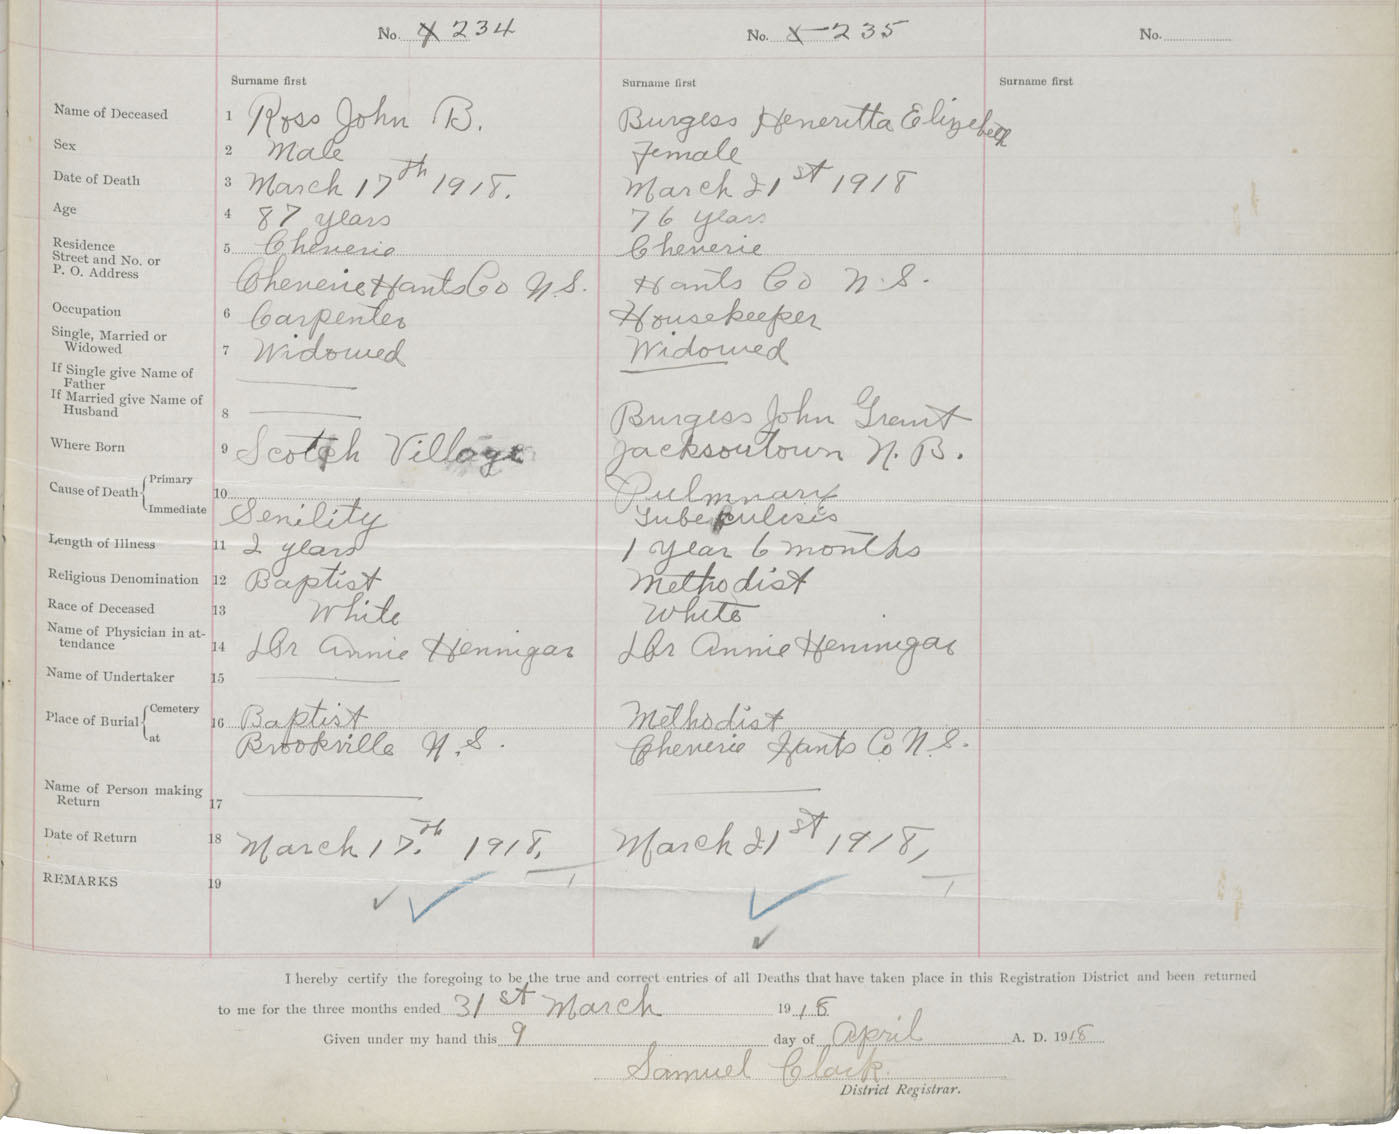 No. 4 234 No. 5 235 No.
Surname first Surname first Surname first
Name of Deceased 1 Ross John B. Burgess Heneritta Elizebeth
Sex 2 Male Female
Date of Death 3 March 17th 1918. March 21st 1918
Age 4 87 years 76 years
Residence
Street and No. or
P. O. Address
5 Cheverie Cheverie
Cheverie Hants Co N.S. Hants Co N.S.
Occupation 6 Carpenter Housekeeper
Single, Married or
Widowed 7 Widowed Widowed
If Single give Name of
Father
If Married give Name of
Husband 8 Burgess John Grant
Where Born 9 Scotch Village Jacksontown N.B.
Cause of Death Primary 10 Pulmnary
Immediate Senility Tuberculisis
Length of Illness 11 2 years 1 year 6 months
Religious Denomination 12 Baptist Methodist
Race of Deceased 13 White White
Name of Physician in at-
tendance 14 Dr Annie Hennigar Dr Annie Hennigar
Name of Undertaker 15
Place of Burial Cemetery 16 Baptist Methodist
at Brookville N.S. Cheverie Hants Co N.S.
Name of Person making
Return 17
Date of Return 18 March 17th. 1918. March 21st 1918,
REMARKS 19
I hereby certify the foregoing to be the true and correct entries of all Deaths that have taken place in this Registration District and been returned
to me for the three months ended 31st March 1918
Given under my hand this 9 day of April A. D. 1918
Samuel Clark.
District Registrar.